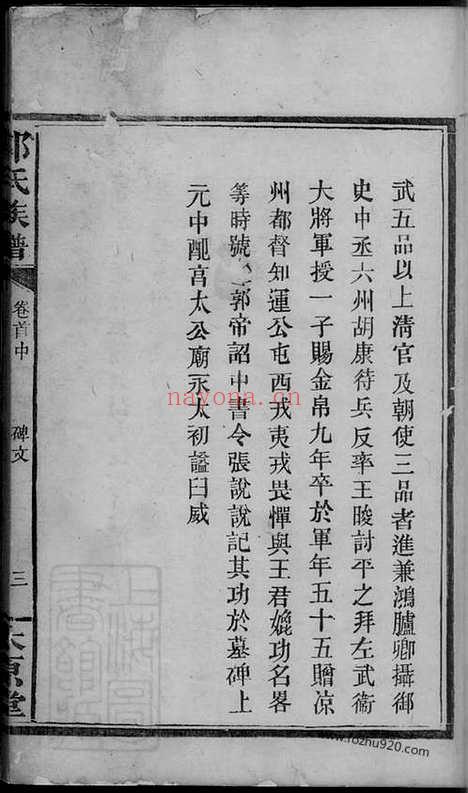 武五品以上清官及朝使三品者進兼鴻臚卿攝御
史中丞六州胡康待兵反率王晙討平之拜左武衞
大將軍授一子賜金帛九年卒於軍年五十五贈凉
州都督知運公屯西戎夷戎畏憚與王君㚟功名畧
等時號王郭帝詔中書令張說說記其功於墓碑上
元中配亯太公廟永太初謚曰威
郭氏族譜
卷首中
碑文
三
太原堂
上海圖書館藏
nayona.cn
www.fozhu920.com